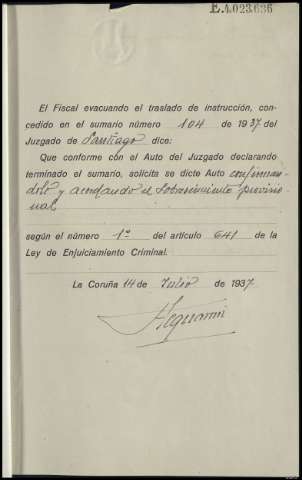 E.4.023,636
El Fiscal evacuando el traslado de instrucción, con-
cedido en el sumario número 104 de 1937 del
Juzgado de Santiago dice:
Que conforme con el Auto del Juzgado declarando
terminado el sumario, solicita se dicte Auto confirman-
dolo y acordando el sobreseimiento provisio-
nal
según el número 1º del artículo 641 de la
Ley de Enjuiciamiento Criminal.
La Coruña 14 de Julio de 1937.